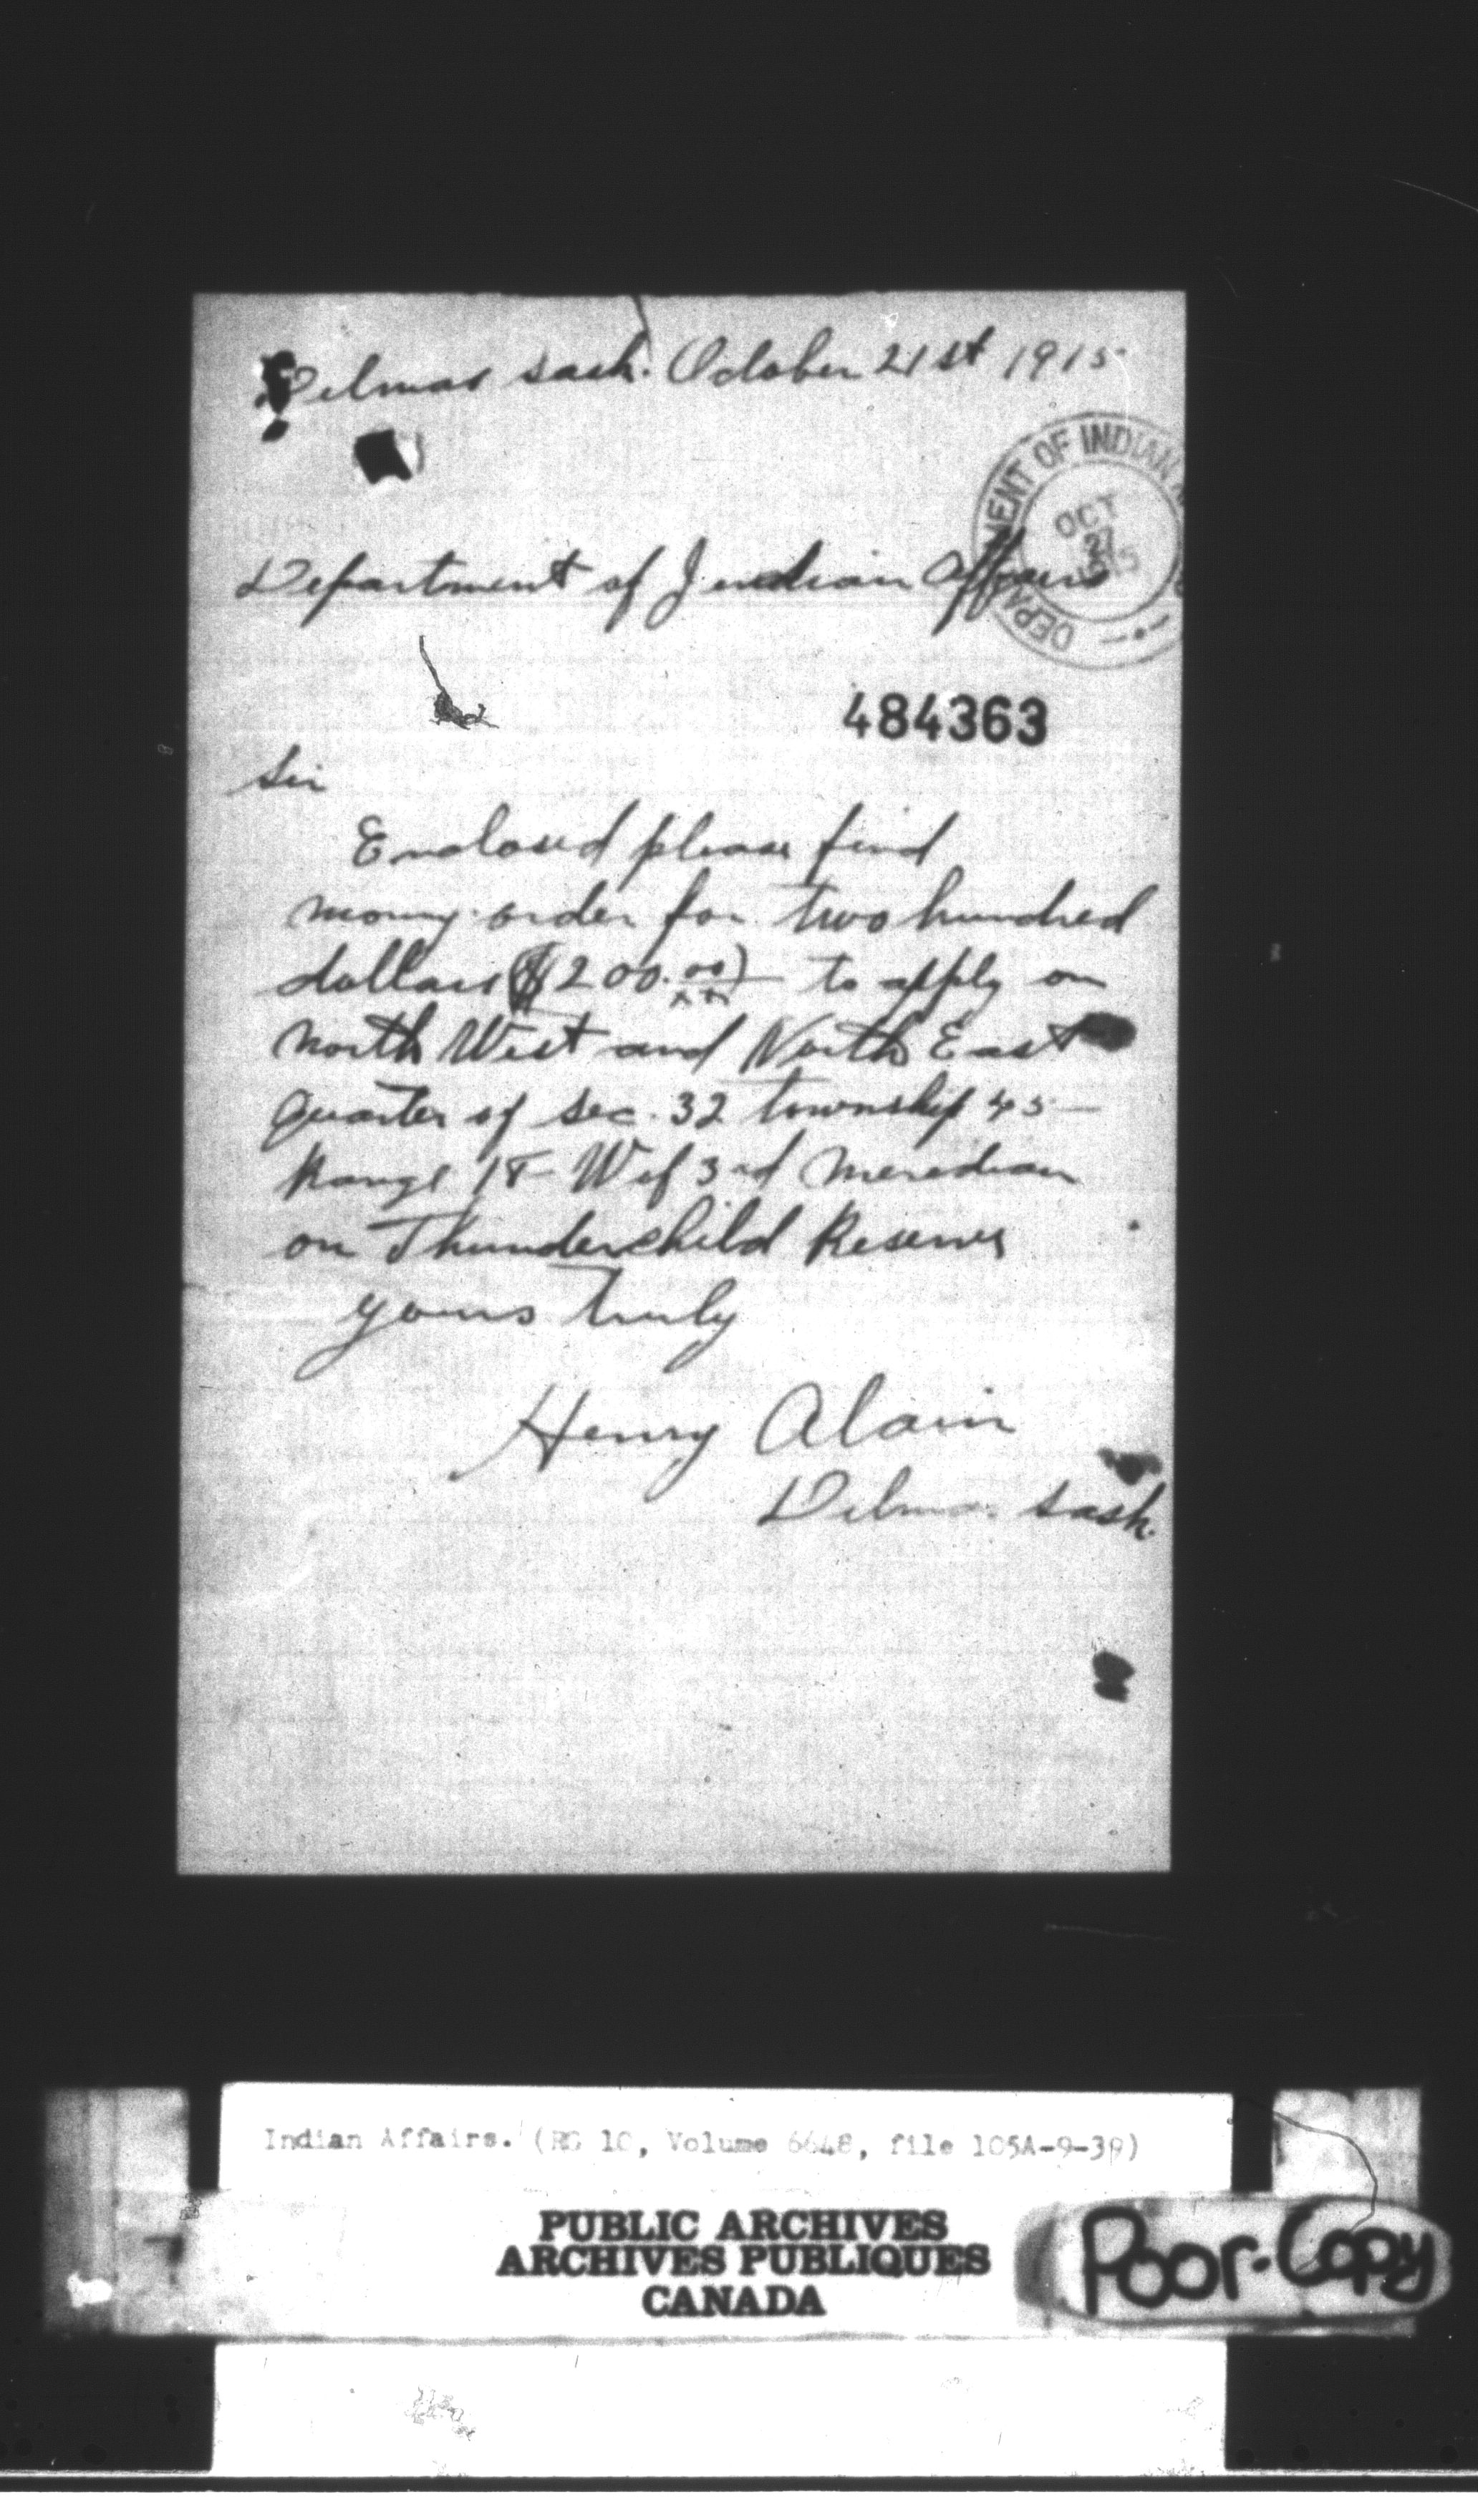 Delmas sask. October 21st 1915
DEPARTMENT OF INDIAN
OCT
27
1915
Department of Indian Affairs
484363
Sir
Enclosed please find
money order for two hundred
dollars ($200.00/xx) to apply on
North West and North East
quarter of sec. 32 township 45
Range 18 W of 3rd Meredian
on Thunderchild Reserve
yours truly
Henry Alain
Delmas sask.
Indian Affairs. (RG 10, Volume 6648, file 105A-9-39)
PUBLIC ARCHIVES
ARCHIVES PUBLIQUES
CANADA
Poor-Copy